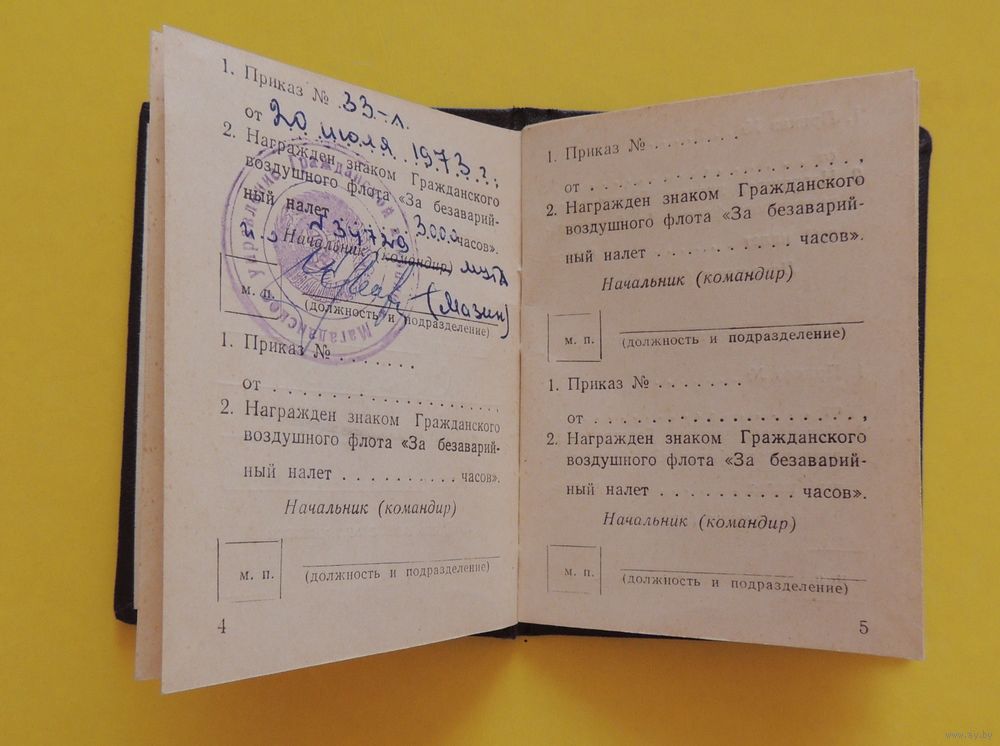 1. Приказ № 33-л.
от 20 июля 1973 г.,
2. Награжден знаком Гражданского
воздушного флота «За безаварий-
ный налет 3000 часов».
Начальник (командир) МУГА
(Мазин)
м. п.
(должность и подразделение)
Магаданское управление гражданской
1. Приказ № . . . . . . .
от . . . . . . . . . . . . . . . . . . .
2. Награжден знаком Гражданского
воздушного флота «За безаварий-
ный налет . . . . . . . . . . часов».
Начальник (командир)
м. п.
(должность и подразделение)
4
1. Приказ № . . . . . . .
от . . . . . . . . . . . . . . . . . . . ,
2. Награжден знаком Гражданского
воздушного флота «За безаварий-
ный налет . . . . . . . . . . часов».
Начальник (командир)
м. п.
(должность и подразделение)
1. Приказ № . . . . . . .
от . . . . . . . . . . . . . . . . . . . ,
2. Награжден знаком Гражданского
воздушного флота «За безаварий-
ный налет . . . . . . . . . . часов».
Начальник (командир)
м. п.
(должность и подразделение)
5
www.ay.by